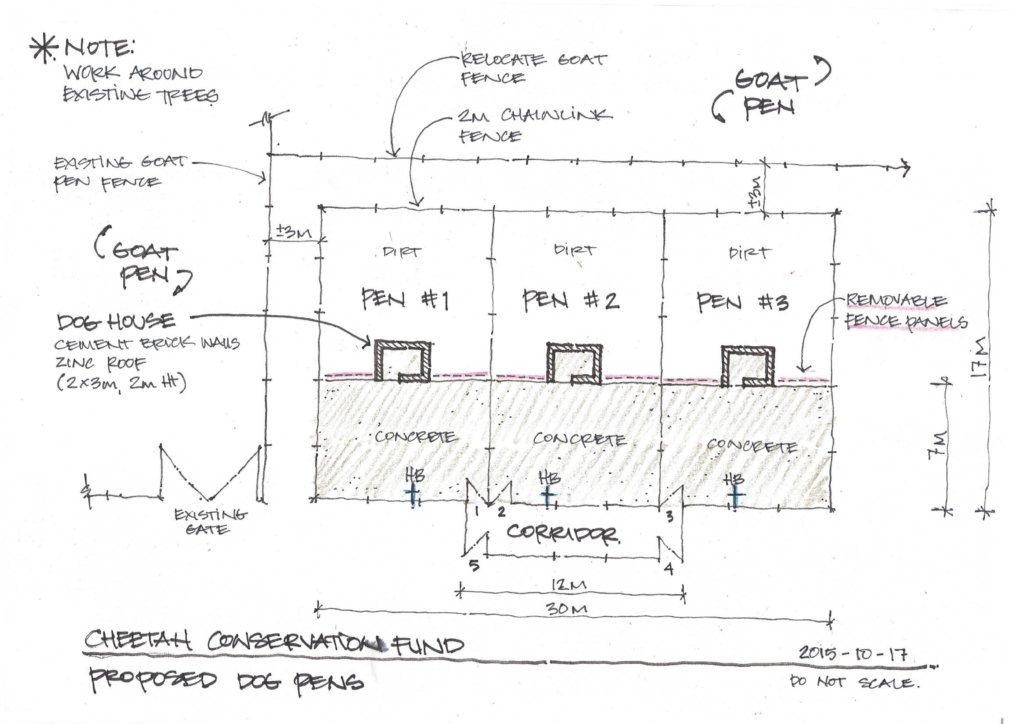 * NOTE:
WORK AROUND
EXISTING TREES
RELOCATE GOAT
FENCE
2M CHAINLINK
FENCE
GOAT
PEN
EXISTING GOAT
PEN FENCE
±3M
±3M
GOAT
PEN
DIRT
DIRT
DIRT
PEN #1
PEN #2
PEN #3
REMOVABLE
FENCE PANELS
DOG HOUSE
CEMENT BRICK WALLS
ZINC ROOF
(2x3m, 2m Ht)
17M
7M
CONCRETE
CONCRETE
CONCRETE
HB
HB
HB
EXISTING
GATE
1 2
3
CORRIDOR
5
4
12M
30M
CHEETAH CONSERVATION FUND
PROPOSED DOG PENS
2015-10-17
DO NOT SCALE.